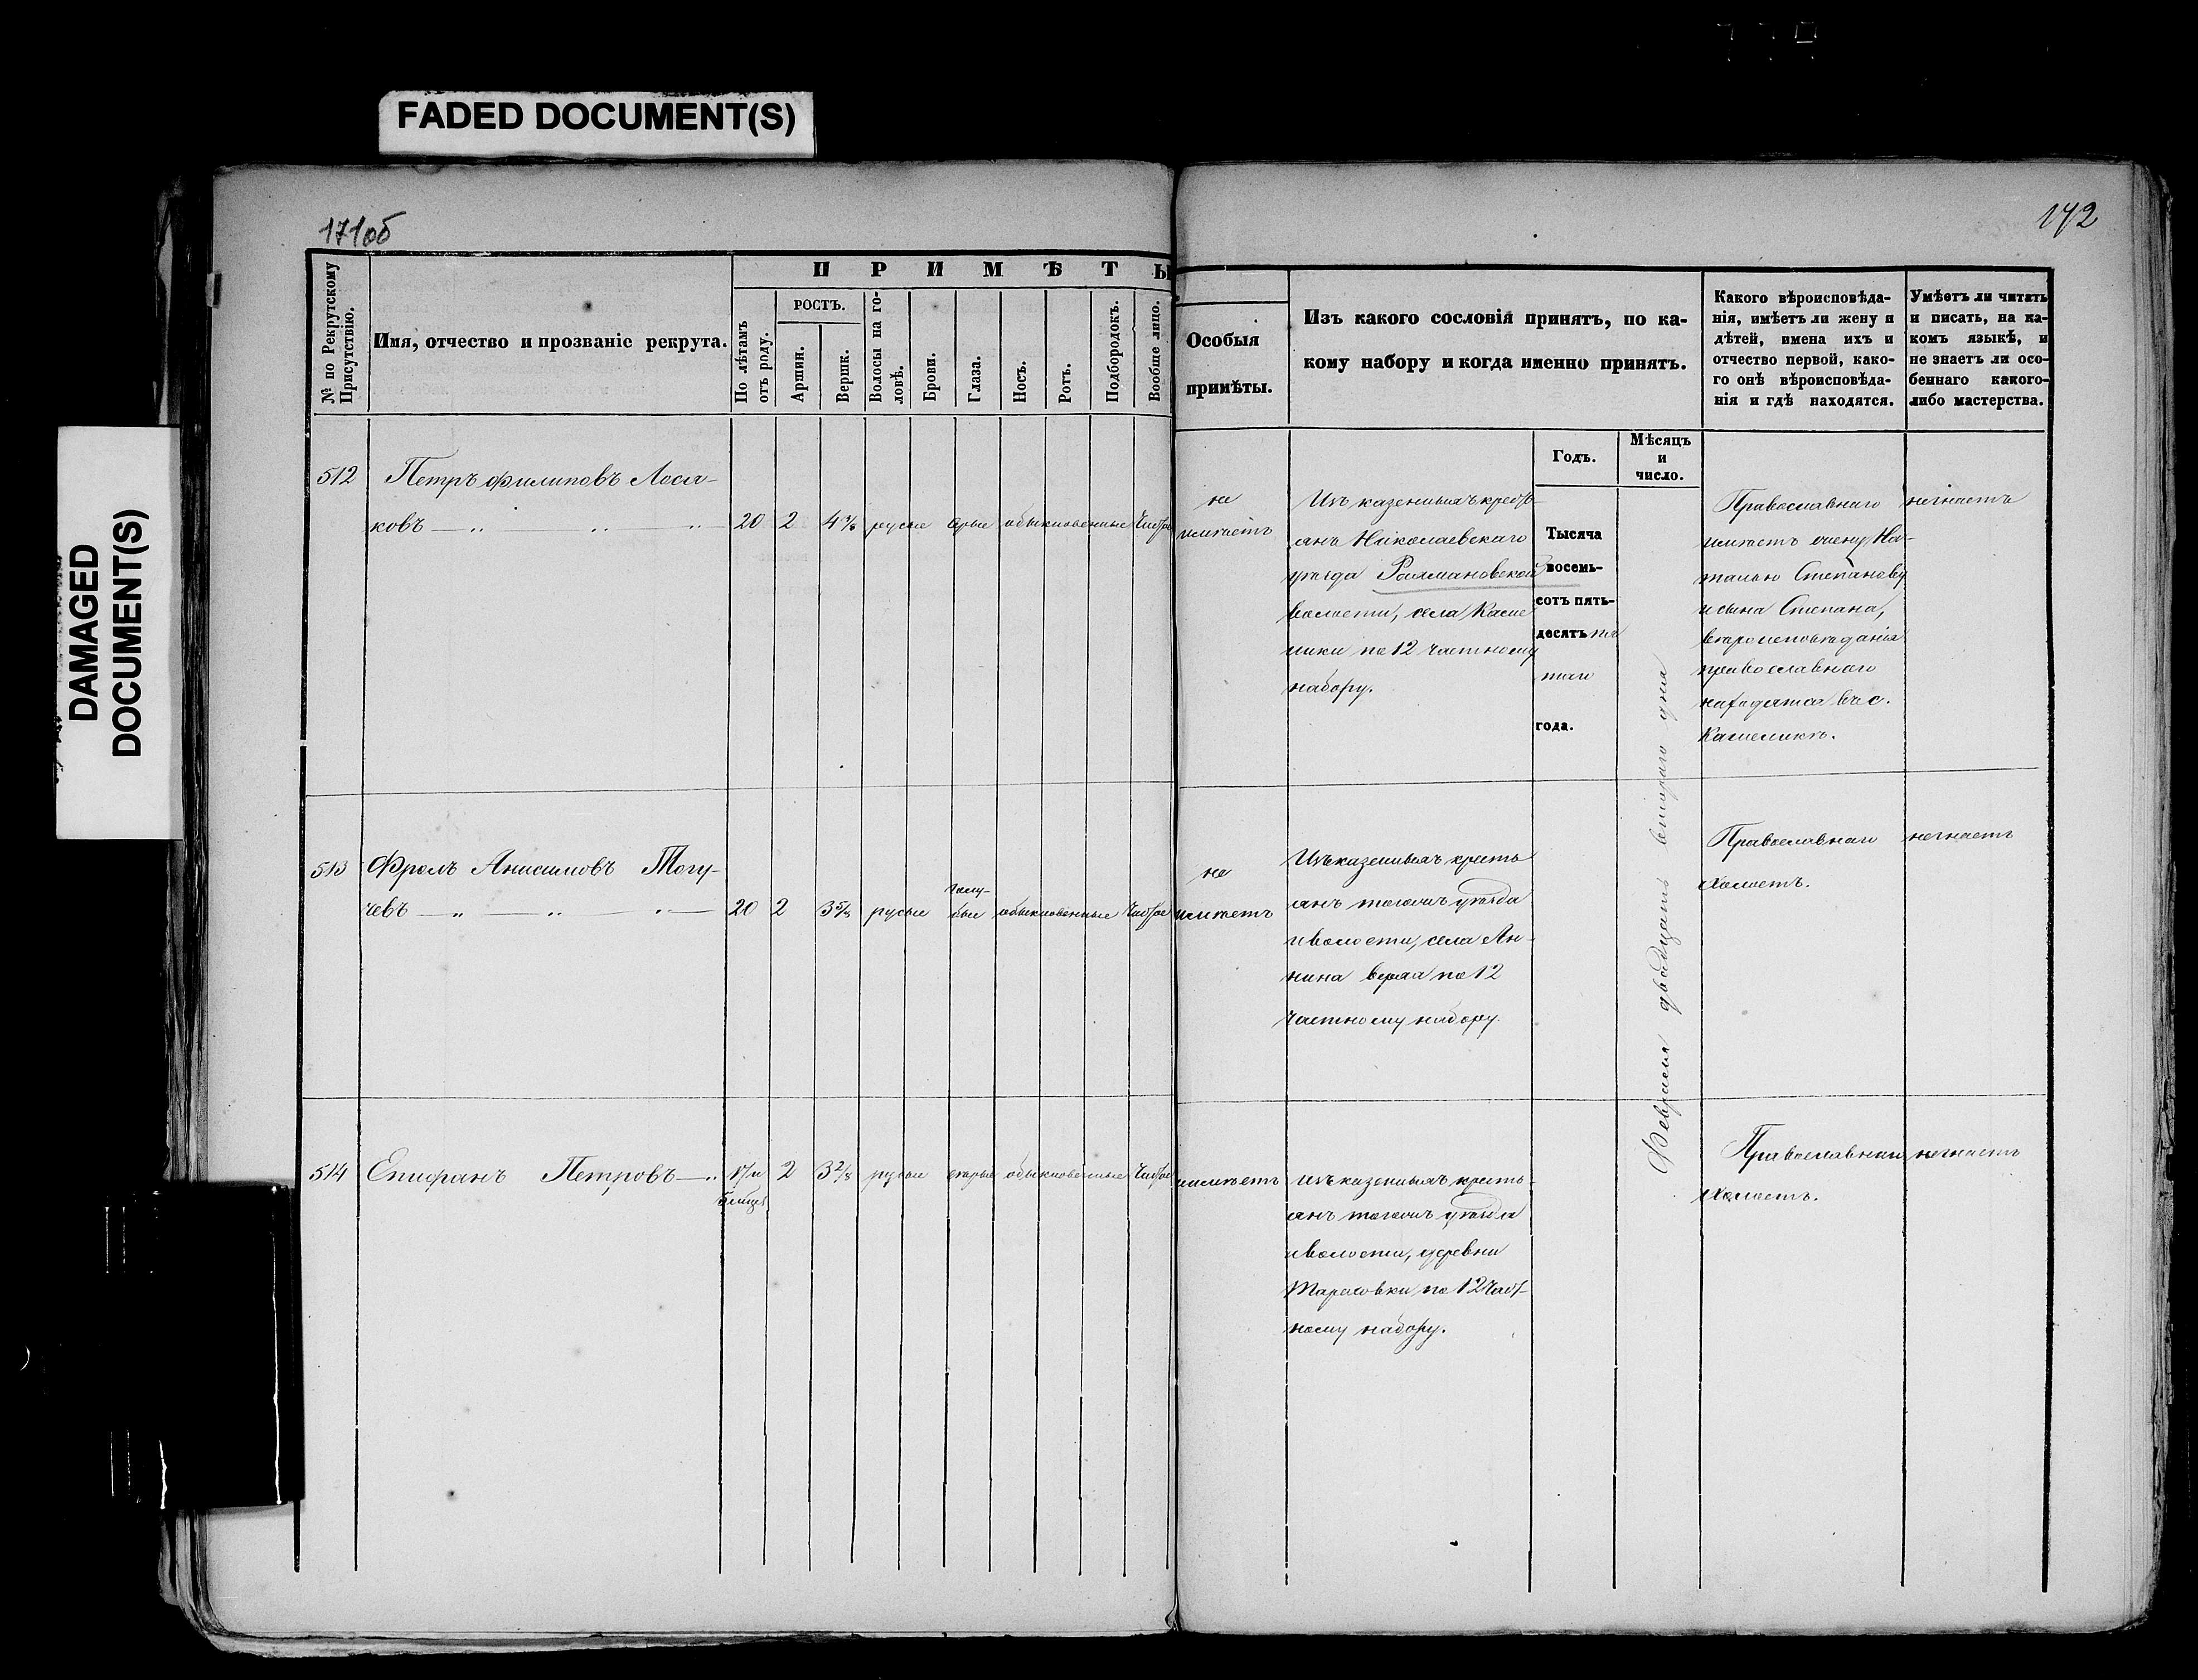 FADED DOCUMENT(S)
DAMAGED
DOCUMENT(S)
171об
172
№ по Рекрутскому Присутствію.
Имя, отчество и прозваніе рекрута.
ПРИМѢТЫ
По лѣтамъ отъ роду.
РОСТЪ.
Аршин.
Вершк.
Волосы на головѣ.
Брови.
Глаза.
Носъ.
Ротъ.
Подбородокъ.
Вообще лицо.
Особыя
примѣты.
Изъ какого сословія принятъ, по ка-
кому набору и когда именно принятъ.
Какого вѣроисповѣда-
нія, имѣетъ ли жену и
дѣтей, имена ихъ и
отчество первой, како-
го онѣ вѣроисповѣда-
нія и гдѣ находятся.
Умѣетъ ли читать
и писать, на ка-
комъ языкѣ, и
не знаетъ ли осо-
беннаго какого-
либо мастерства.
Годъ.
Мѣсяцъ
и
число.
512
Петръ Филиповъ Лося-
ковъ
20 2 4 русые сѣрые обыкновенные Чистое
не
имѣетъ
Изъ казенныхъ кресть-
янъ Николаевскаго
уѣзда Рахмановской
волости, села Каме
лики по 12 частному
набору.
Тысяча
восемь-
сотъ пять-
десятъ пя
таго
года.
Февраля двадцать втораго дня
Православнаго
имѣетъ жену На-
талью Степанову
и сына Степана,
вѣроисповѣданія
православнаго
находятся въ с.
Камеликѣ.
незнаетъ
513
Фролъ Анисимовъ Могу-
чевъ
20 2 3 5/8 русые голу-
бые обыкновенные Чистое
не
имѣетъ
Изъ казенныхъ кресть
янъ тогожъ уѣзда
и волости, села Ан-
нина верха по 12
частному набору.
Православнаго
холостъ.
незнаетъ
514
Епифанъ Петровъ
2 3 2/8 русые карые обыкновенные Чистое
неимѣетъ
изъ казенныхъ кресть-
янъ тогожъ уѣзда
и волости, деревни
Тарасовки по 12 част-
ному набору.
Православнаго
холостъ.
незнаетъ